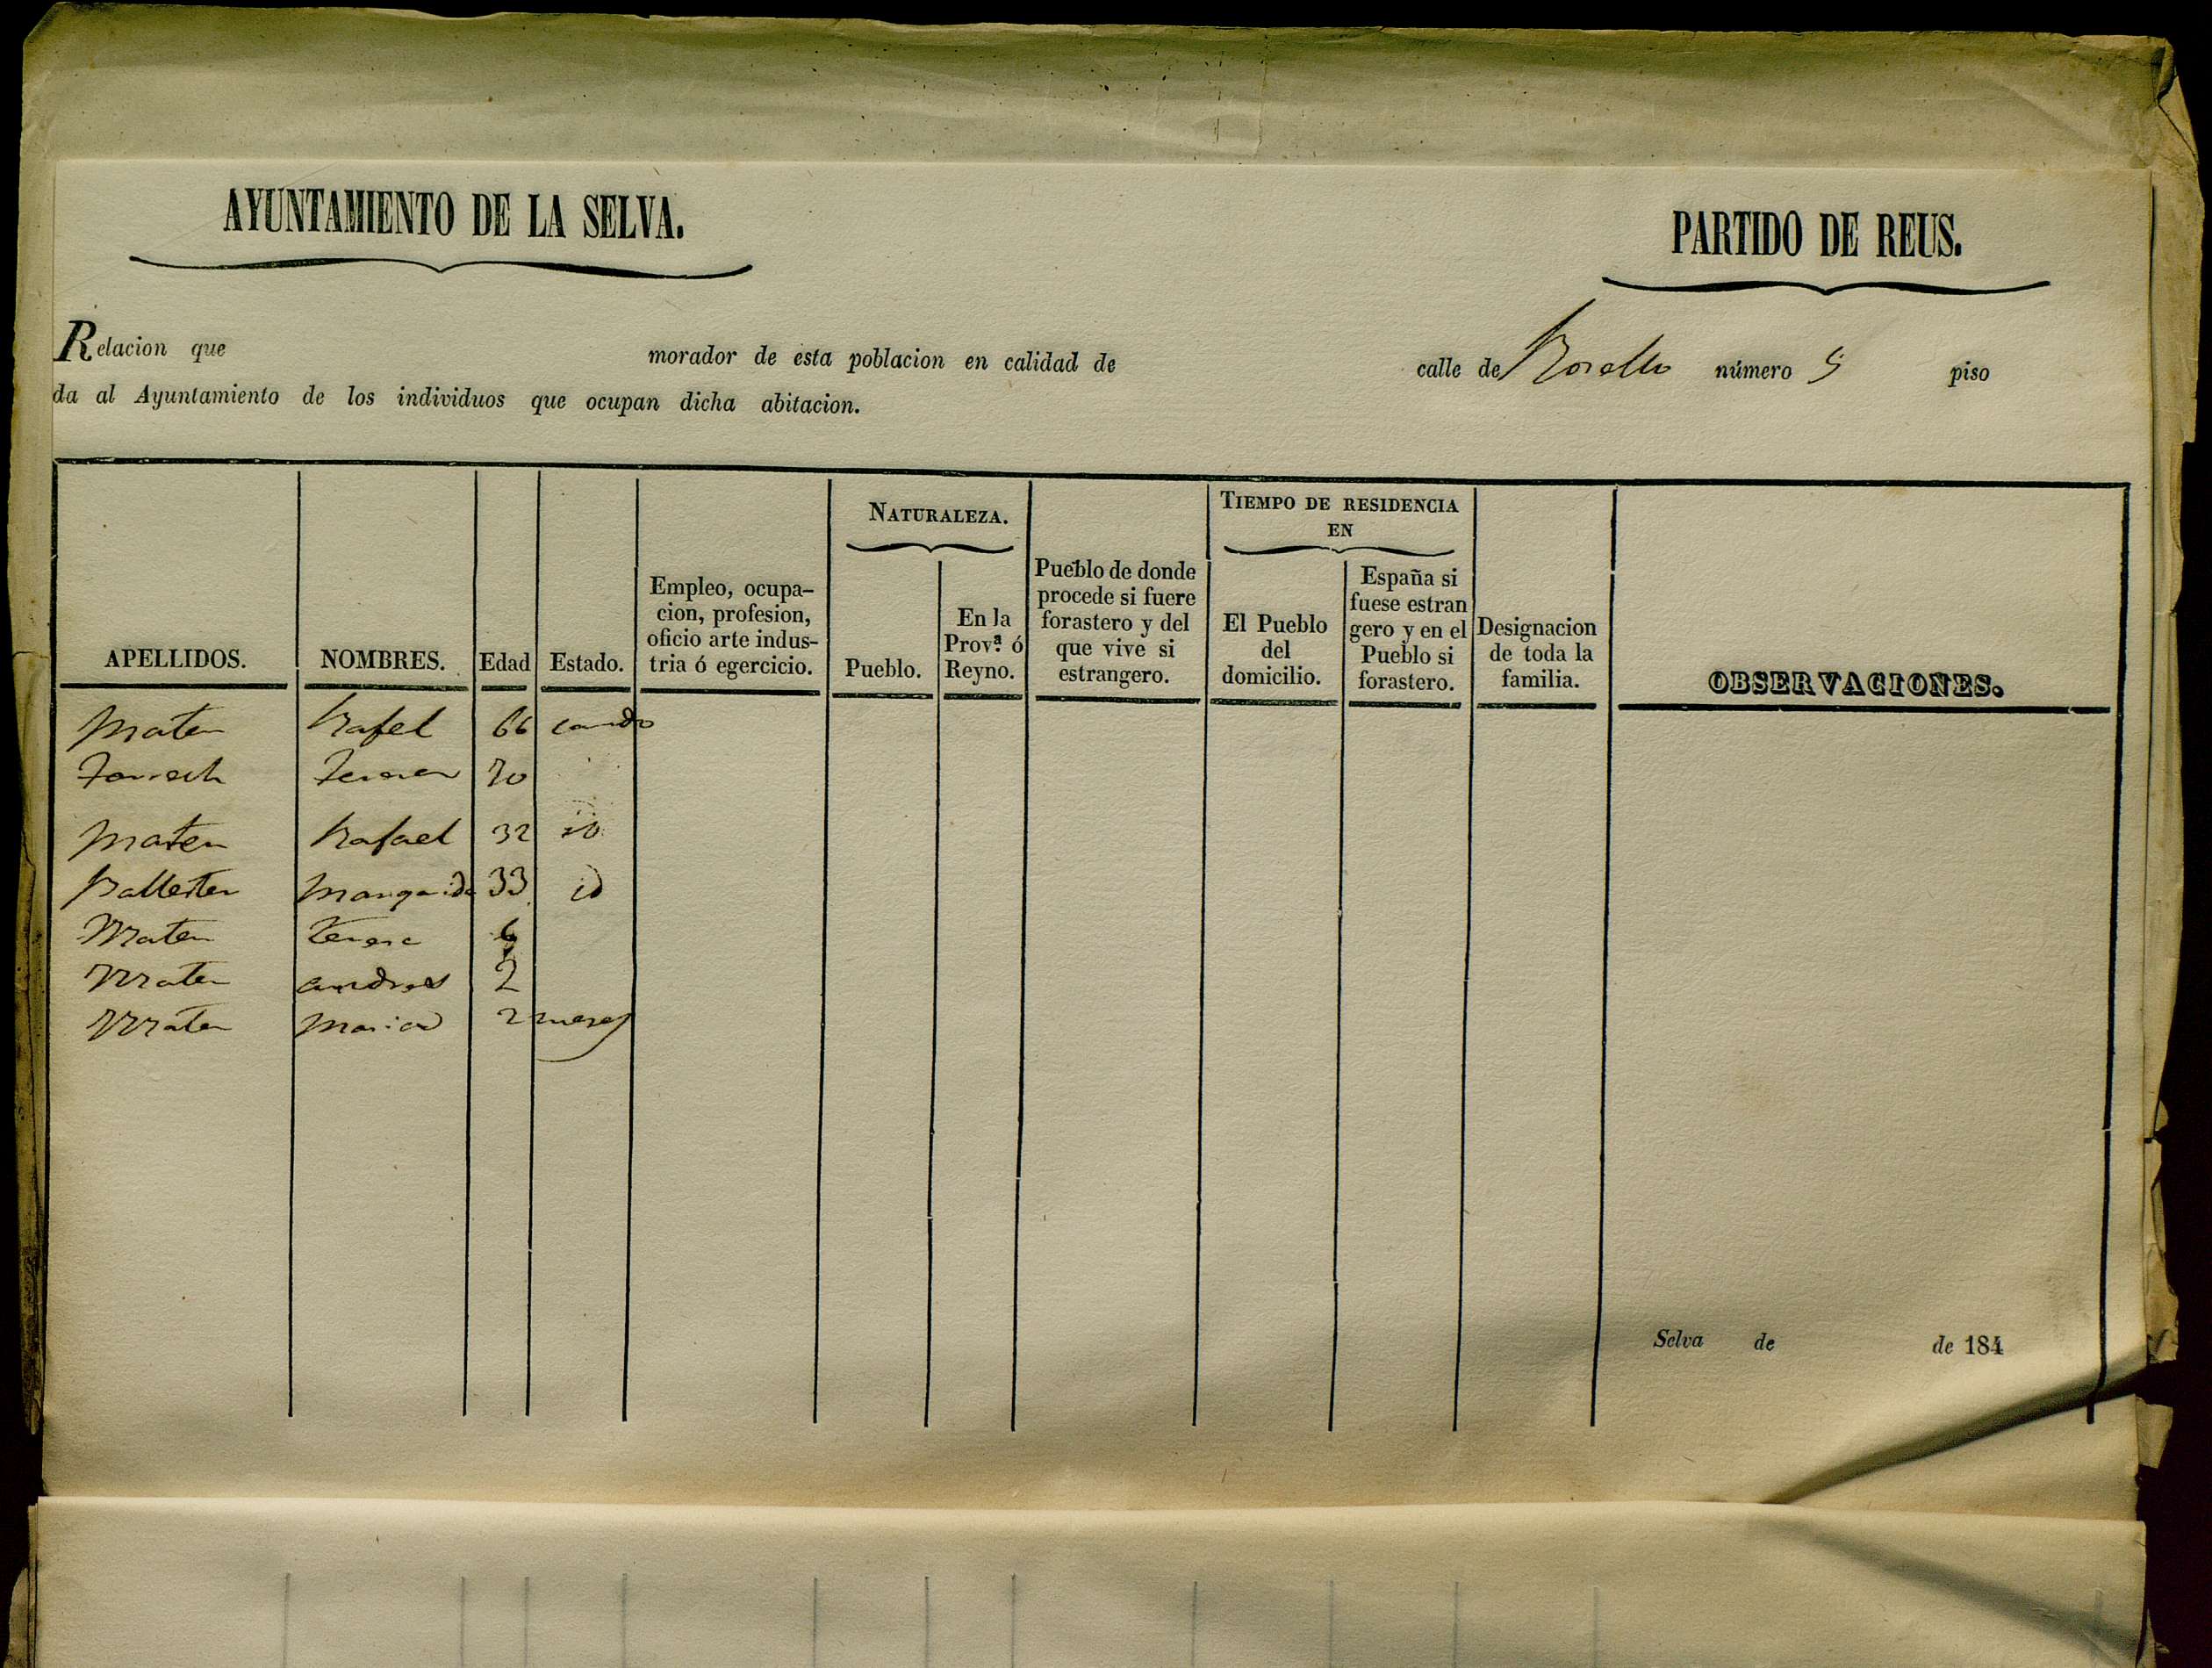 AYUNTAMIENTO DE LA SELVA.
PARTIDO DE REUS.
Relacion que morador de esta poblacion en calidad de calle de número 5 piso
da al Ayuntamiento de los individuos que ocupan dicha abitacion.
APELLIDOS.
NOMBRES.
Edad
Estado.
Empleo, ocupa-
cion, profesion,
oficio arte indus-
tria ó egercicio.
NATURALEZA.
Pueblo.
En la
Prov.ª ó
Reyno.
Pueblo de donde
procede si fuere
forastero y del
que vive si
estrangero.
TIEMPO DE RESIDENCIA
EN
El Pueblo
del
domicilio.
España si
fuese estran
gero y en el
Pueblo si
forastero.
Designacion
de toda la
familia.
OBSERVACIONES.
Mateu Rafel 66 casado
Teresa 70
Mateu Rafael 32 id
Ballester Margarida 33 id
Mateu Teresa 6
Mateu andres 2
Mateu Maria 2 meses
Selva de de 184